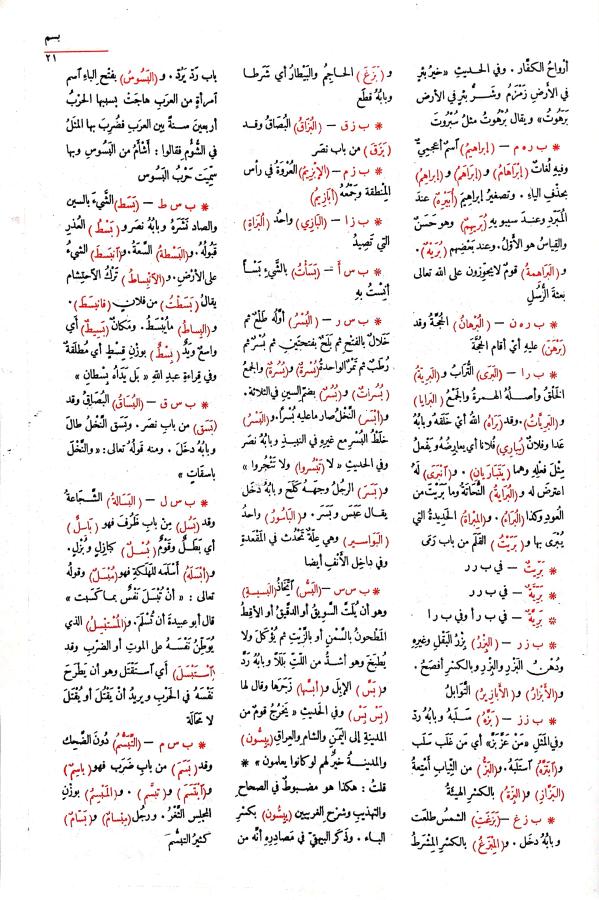 بسم
٢١
أرواحُ الكفّار . وفي الحديثِ «خيرُ بئرٍ
في الأرضِ زَمْزَمُ وشَرُّ بئرٍ في الأرضِ
بَرَهُوتُ» ويقالُ بُرْهُوتُ مثلُ سُبْرُوتَ
* ب ره م – (إبراهيمُ) اسمٌ أعجميٌّ
وفيه لُغاتٌ (إبْرَاهَامُ) و(إبْرَاهَمُ) و(إبْرَاهِمُ)
بحذفِ الياءِ . وتصغيرُ إبراهيمَ (أُبَيْرِهٌ) عندَ
المُبَرّدِ وعند سيبويهِ (بُرَيْهِمٌ) وهو حَسَنٌ
والقِياسُ هو الأوّلُ . وعندَ بعضِهم (بُرَيْهٌ) .
و(البراهِمةُ) قومٌ لا يُجوّزون على اللهِ تعالى
بعثةَ الرُّسُلِ
* ب ره ن – (البُرْهانُ) الحُجّةُ وقد
(بَرْهَنَ) عليه أي أقامَ الحُجّةَ
* ب را – (البَرَى) التُّرابُ و(البَرِيّةُ)
الخَلْقُ وأصلُهُ الهمزةُ والجمعُ (البَرايا)
و(البَرِيّاتُ) . وقد (بَرَاهُ) اللهُ أي خَلَقَهُ وبابُهُ
عَدا وفلانٌ (يُباري) فلانًا أي يعارضُه ويفعلُ
مِثْلَ فعلِه وهما (يَتَبارَيانِ) . و(انْبَرَى) له
اعترضَ له و(البُرَايةُ) النُّحاتةُ وما بَرَيْتَ من
العُودِ وكذا (البُراءُ) . و(المِبْراةُ) الحديدةُ التي
يُبْرَى بها و(بَرَيْتُ) القَلَمَ من باب رَمَى
* بَرِيّتٌ – في ب ر ر
* بَرِيّةٌ – في ب ر ر
* بَرِيّةٌ – في ب ر أ وفي ب ر ا
* ب زر – (البِزْرُ) بِزْرُ البَقْلِ وغيرِهِ
ودُهْنُ البَزْرِ والبِزْرِ وبالكسرِ أفصحُ .
و(الأَبْزارُ) و(الأَبازِيرُ) التَّوابلُ
* ب زز – (بَزَّهُ) سَلَبَهُ وبابُهُ ردّ
وفي المَثَلِ «مَنْ عَزَّ بَزَّ» أي مَن غَلَبَ سَلَبَ
و(ابْتَزَّهُ) استَلَبَهُ . و(البَزُّ) من الثيابِ أمْتِعةُ
(البَزّازِ) و(البِزّةُ) بالكسرِ الهيئةُ
* ب زغ – (بَزَغَتِ) الشمسُ طلعَت
وبابُهُ دخل . و(المِبْزَغُ) بالكسرِ المِشْرَطُ
و(بَزَغَ) الحاجِمُ والبَيْطارُ أي شَرَطا
وبابُهُ قَطَع
* ب زق – (البُزَاقُ) البُصَاقُ وقد
(بَزَقَ) من باب نصَر
* ب زم – (الإبْزيمُ) العُرْوةُ في رأسِ
المِنْطقةِ وجمعُهُ (أبازِيمُ)
* ب زا – (البازِي) واحدُ (البُزاةِ)
التي تَصِيدُ
* ب س أ – (بَسَأْتُ) بالشّيءِ بَسْأً
أنِسْتُ بهِ
* ب س ر – (البُسْرُ) أوّلُهُ طَلْعٌ ثم
خَلالٌ بالفتح ثم بَلَحٌ بفتحتينِ ثم بُسْرٌ ثم
رُطَبٌ ثم تَمْرٌ الواحدةُ (بُسْرَةٌ) و(بُسُرَةٌ) والجمعُ
(بُسُراتٌ) و(بُسُرٌ) بضمِّ السينِ في الثلاثة .
و(أبْسَرَ) النخلُ صارَ ما عليه بُسْرًا . و(البَسْرُ)
خَلْطُ البُسْرِ مع غيرِه في النبيذِ وبابُهُ نصَر
وفي الحديثِ «لا (تَبْسُروا) ولا تَثْجُروا»
و(بَسَرَ) الرجلُ وجهَهُ كَلَحَ وبابُهُ دخَل
يقالُ عَبَسَ وبَسَرَ . و(الباسُورُ) واحدُ
(البَواسِيرِ) وهي عِلّةٌ تَحْدُثُ في المَقْعَدةِ
وفي داخِلِ الأَنْفِ أيضا
* ب س س – (البَسُّ) اتّخاذُ (البَسيسةِ)
وهو أن يُلَتَّ السّوِيقُ أو الدّقيقُ أو الأَقِطُ
المَطْحونُ بالسَّمْنِ أو بالزّيتِ ثم يُؤكلُ ولا
يُطبَخُ وهو أشدُّ من اللّتِّ بَلَلاً وبابُهُ رَدّ
و(بَسَّ) الإبِلَ و(أبَسَّها) زَجَرَها وقال لها
(بِسْ بِسْ) وفي الحديثِ «يَخْرُجُ قومٌ من
المدينةِ إلى اليَمَنِ والشامِ والعِراقِ (يَبِسّون)
والمدينةُ خيرٌ لهم لو كانوا يعلمون» *
قلتُ : هكذا هو مضبوطٌ في الصحاحِ
والتهذيبِ وشرحِ الغريبينِ (يَبِسّون) بكسرِ
الباء . وذكَر البيهقيّ في مَصادرِهِ أنّه من
باب رَدّ يَرُدّ . و(البَسُوسُ) بفتح الباءِ اسم
امرأةٍ من العربِ هاجَتْ بسببِها الحربُ
أربعينَ سنةً بين العربِ فضُرِبَ بها المَثَلُ
في الشُّؤمِ فقالوا : أشأمُ من البَسُوسِ وبها
سُمّيَتْ حَرْبُ البَسُوسِ
* ب س ط – (بَسَطَ) الشّيءَ بالسينِ
والصادِ نَشَرَهُ وبابُهُ نصَر و(بَسْطُ) العُذرِ
قَبُولُهُ . و(البَسْطةُ) السَّعةُ . و(انْبَسَطَ) الشيءُ
على الأرضِ . و(الانْبِساطُ) تَرْكُ الاحْتِشامِ
يقالُ (بَسَطْتُ) من فلانٍ (فانبسَطَ) .
و(البِساطُ) ما يُبْسَطُ . ومكانٌ (بَسِيطٌ) أي
واسعٌ ويَدٌ (بِسْطٌ) بوزنِ قِسْطٍ أي مُطلَقةٌ
وفي قِراءةِ عبدِ اللهِ «بل يَداهُ بِسْطانِ»
* ب س ق – (البُساقُ) البُصاقُ وقد
(بَسَقَ) من باب نصَر . وبَسَقَ النّخلُ طالَ
وبابُهُ دخَل . ومنه قولُه تعالى : «والنّخْلَ
باسِقاتٍ»
* ب س ل – (البَسالةُ) الشّجاعةُ
وقد (بَسُلَ) من بابِ ظَرُفَ فهو (باسِلٌ)
أي بَطَلٌ وقومٌ (بُسْلٌ) كبازِلٍ وبُزْلٍ .
و(أبْسَلَهُ) أسْلَمَهُ للهَلَكةِ فهو (مُبْسَلٌ) وقولُهُ
تعالى : «أنْ تُبْسَلَ نَفْسٌ بما كَسَبَت»
قال أبو عبيدةَ أن تُسْلَمَ . و(المُسْتَبْسِلُ) الذي
يُوَطّنُ نَفْسَهُ على الموتِ أو الضربِ وقد
(اسْتَبْسَلَ) أي استَقْتَلَ وهو أن يَطْرَحَ
نَفْسَهُ في الحَربِ ويريدُ أنْ يَقْتُلَ أو يُقْتَلَ
لا مَحالةَ
* ب س م – (التَّبَسُّمُ) دُونَ الضّحِكِ
وقد (بَسَمَ) من بابِ ضَرَبَ فهو (باسِمٌ)
و(ابْتَسَمَ) و(تَبَسَّمَ) . و(المَبْسِمُ) بوزنِ
المجلِسِ الثّغْرُ . ورجلٌ (مِبْسامٌ) و(بَسّامٌ)
كثيرُ التبسُّمِ